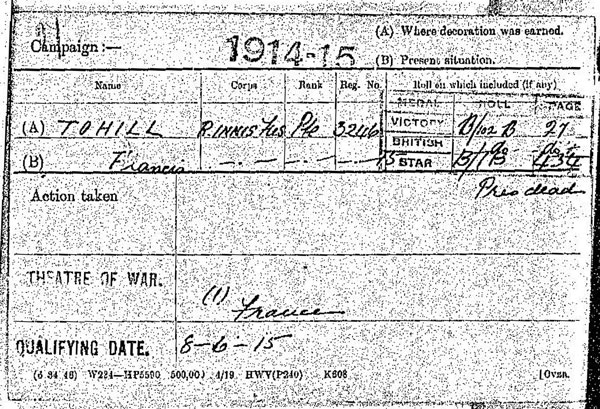 Campaign :—
1914-15
(A) Where decoration was earned.
(B) Present situation.
Name Corps Rank Reg. No. Roll on which included (if any)
MEDAL ROLL PAGE
(A) TOHILL R. INNIS. Fus Pte 3246 VICTORY B/102 B 27
BRITISH do do
(B) Francis —.— —.— —.— 15 STAR B/7B 43
Action taken Pres dead
THEATRE OF WAR. (1) France
QUALIFYING DATE. 8-6-15
(6 34 46) W224—HP5590 500,000 4/19 HWV(P240) K608 [Over.